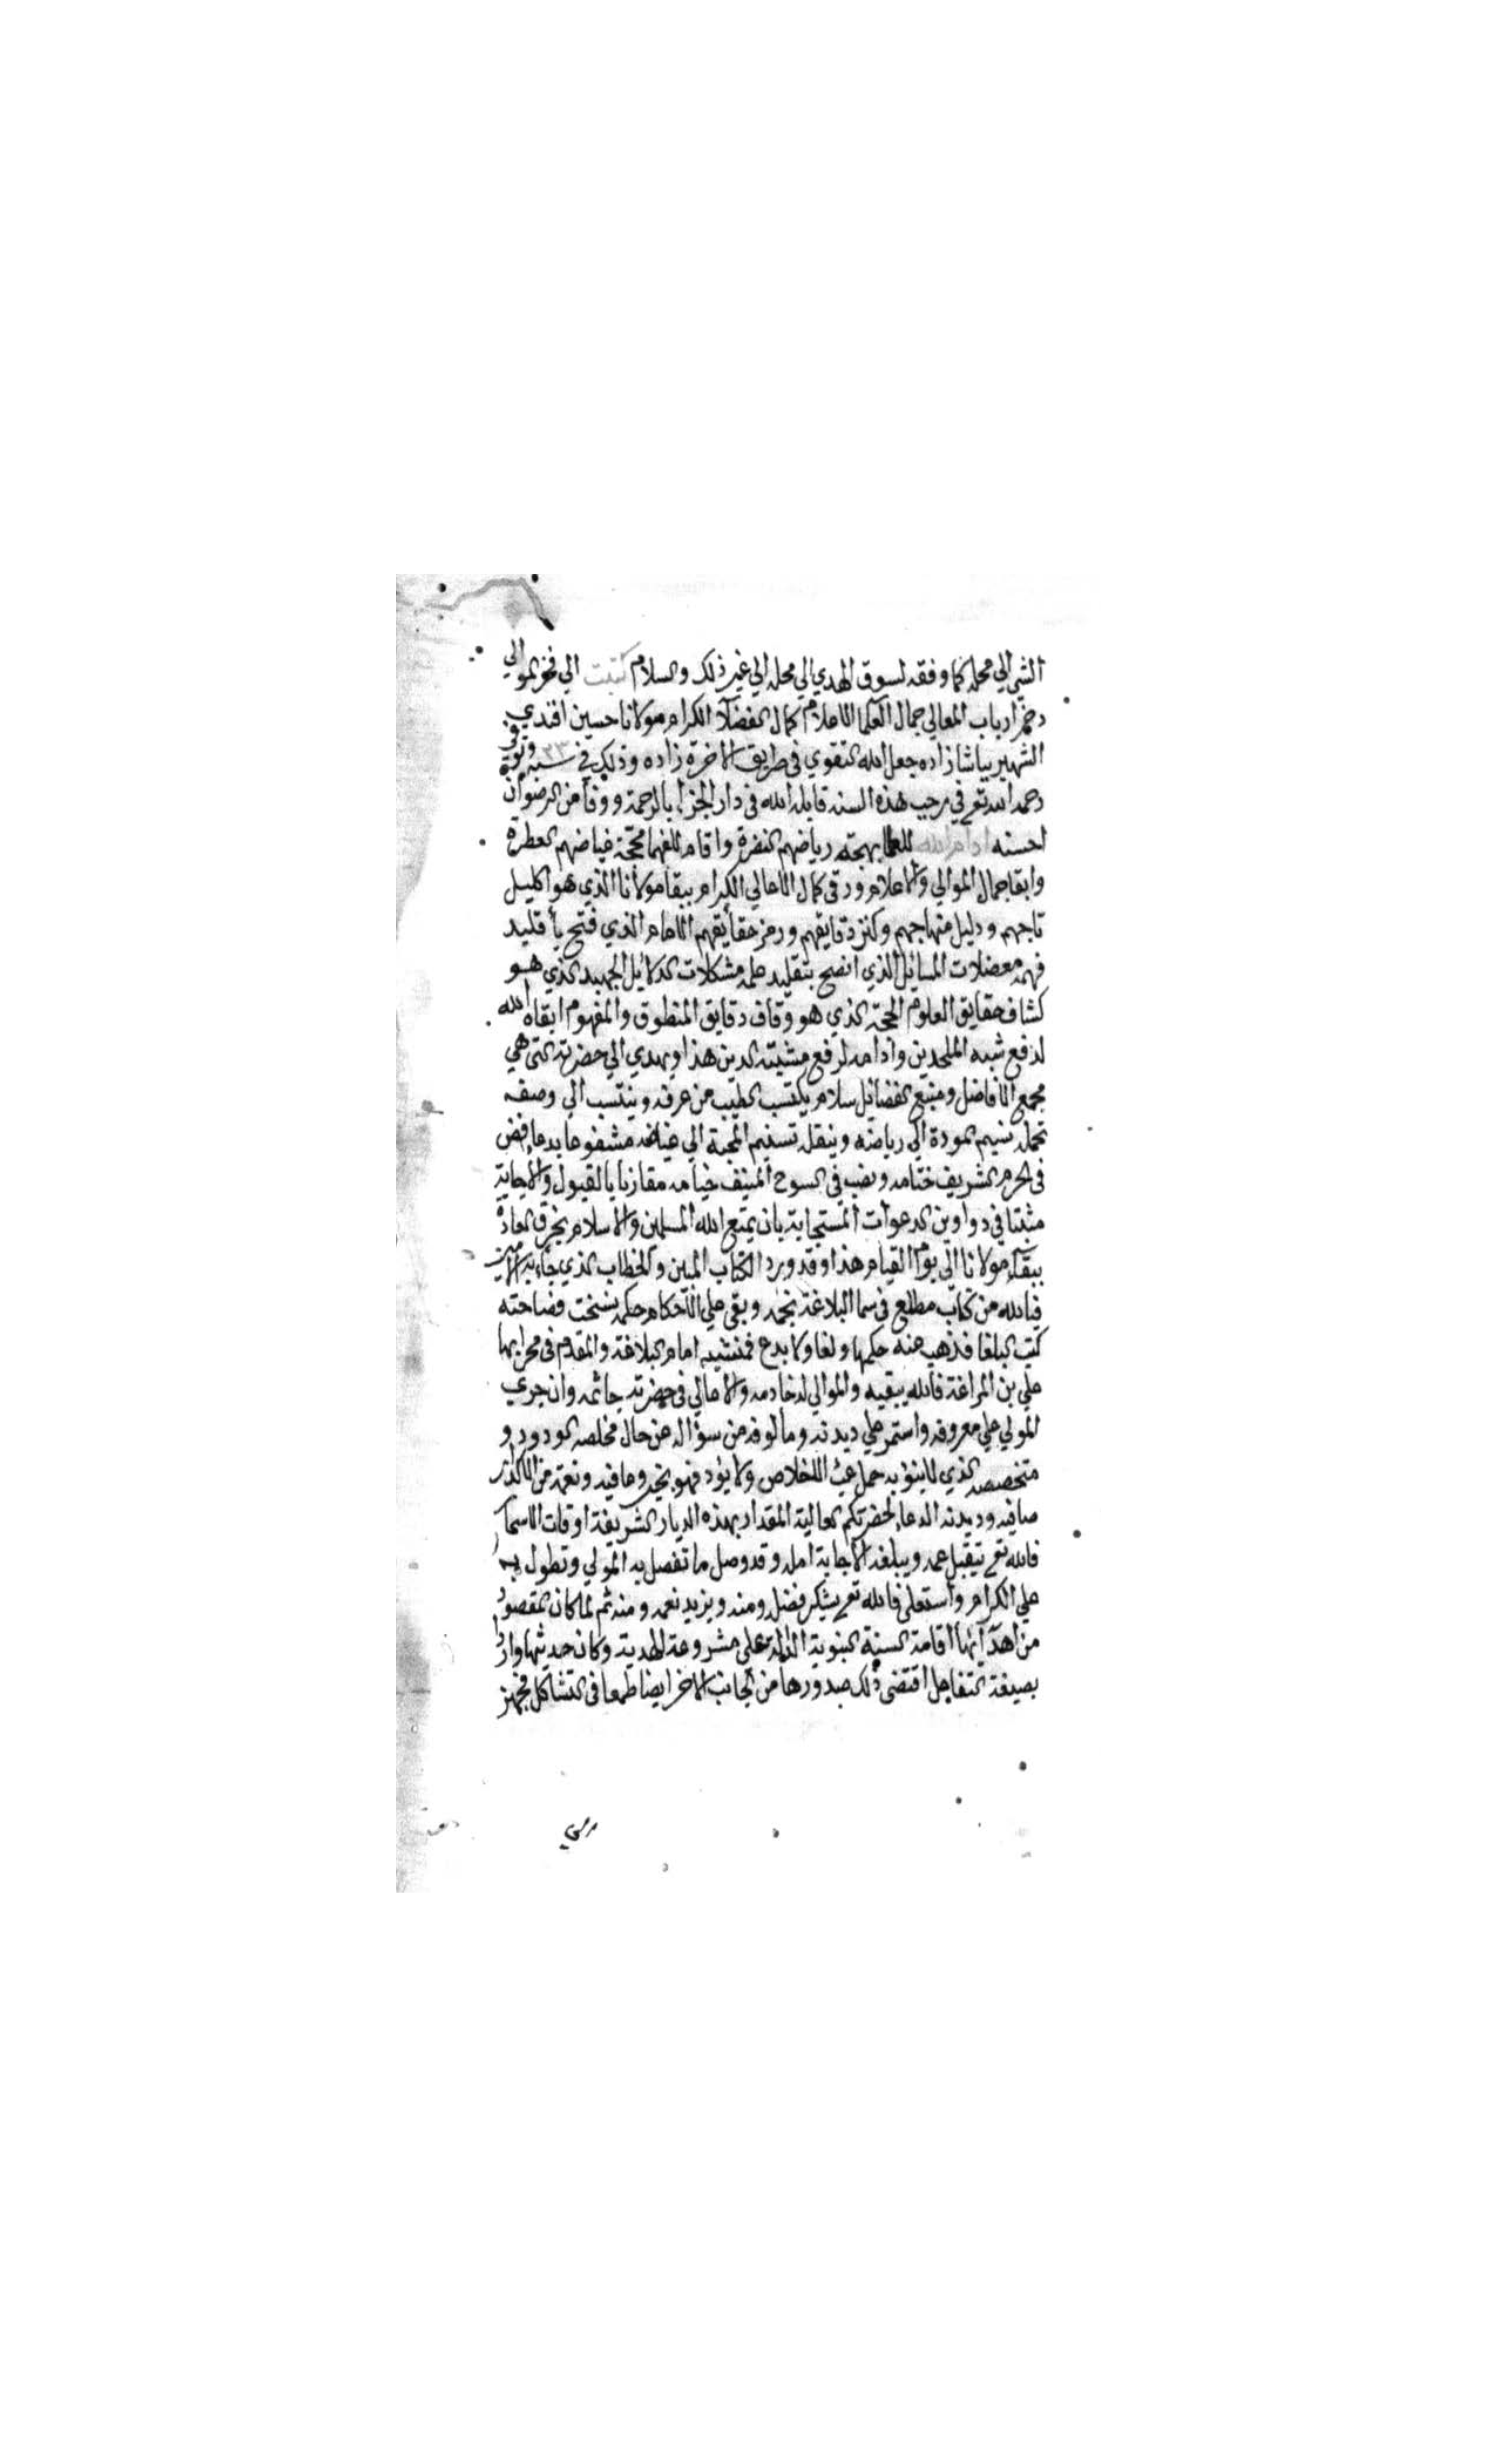 الشي الي محله كما وفقه لسوق الهدي الي محله الي غير ذلك والسلام كتبت الي فخر الموالي
دخر ارباب المعالي جمال العلما الاعلام كمال الفضلآ الكرام مولانا حسين افندي
الشهير بباشا زاده جعل الله التقوي في طريق الاخرة زاده وذلك في سنة ٣٣ وتوفي
رحمه الله تع في رجب هذه السنه قابله الله في دار الجزا بالرحمة ووفاه من الرضوان
احسنه ادام الله للعلما بهجته رياضهم النضرة واقام للفهما محجة غياضهم العطرة
وابقا جمال الموالي والاعلام ورقى كمال الاعالي الكرام ببقا مولانا الذي هو اكليل
تاجهم ودليل منهاجهم وكنز دقايقهم ورمز حقايقهم الامام الذي فتح باقليد
فهمه معضلات المسائل الذي اتضح بتقليد علمه مشكلات الدلائل الجهبد الذي هو
كشاف حقايق العلوم الحجة الذي هو وقاف دقايق المنطوق والمفهوم ابقاه الله
لدفع شبه الملحدين وادامه لرفع الدين هذا ويهدي الي حضرته التي هي
مجمع الافاضل ومنبع الفضائل سلام يكتسب الطيب من عرفه وينتسب الي وصفه
تحمله نسيم المودة الي رياضه وينقله تسنيم المحبة الي مشفوعا بدعا فض
في الحرم الشريف ختامه ونصب في السوح المنيف خيامه مقارنا بالقبول والاجابة
مثبتا في دواوين الدعوات المستجابة بان يمتع الله المسلمين والاسلام بخرق العادة
ببقآء مولانا الي يوم القيام هذا وقد ورد الكتاب المبين والخطاب الذي جاء به الامين
فيالله من كتاب مطلع في سما البلاغة نجمه وبقي علي الاحكام حكمه نسخت فصاحته
كتب البلغا فذهب عنه حكمها ولغا ولا بدع فمنشيه امام البلاغة والمقدم في محرابها
علي بن المراغة فالله يبقيه والموالي لدخادمه والاعالي في حضرته جاثمه وان جري
المولي علي معروفه واستمر علي ديدنه ومالوفه من سؤاله عن حال مخلصه الودود و
متخصصه الذي لا ينؤ به حمل عبئ الاخلاص ولا يؤد فهو بخير وعافيه ونعمة من الاكدار
صافيه وديدنه الدعا لحضرتكم العالية المقدار بهذه الديار الشريفة اوقات الاسحار
فالله تع يتقبل عمله ويبلغه الاجابة امله وقد وصل ما تفضل به المولي وتطول به
علي الكرام واستعلى فالله تع يشكر فضله ومنه ويزيد نعمه ومنه ثم لما كان المقصود
من اهدآئها اقامة السنة النبوية الدالة علي مشروعة الهدية وكان حديثها وارد
بصيغة التفاعل اقتضى ذلك صدورها من الجانب الاخر ايضا طمعا في التشاكل فجهز